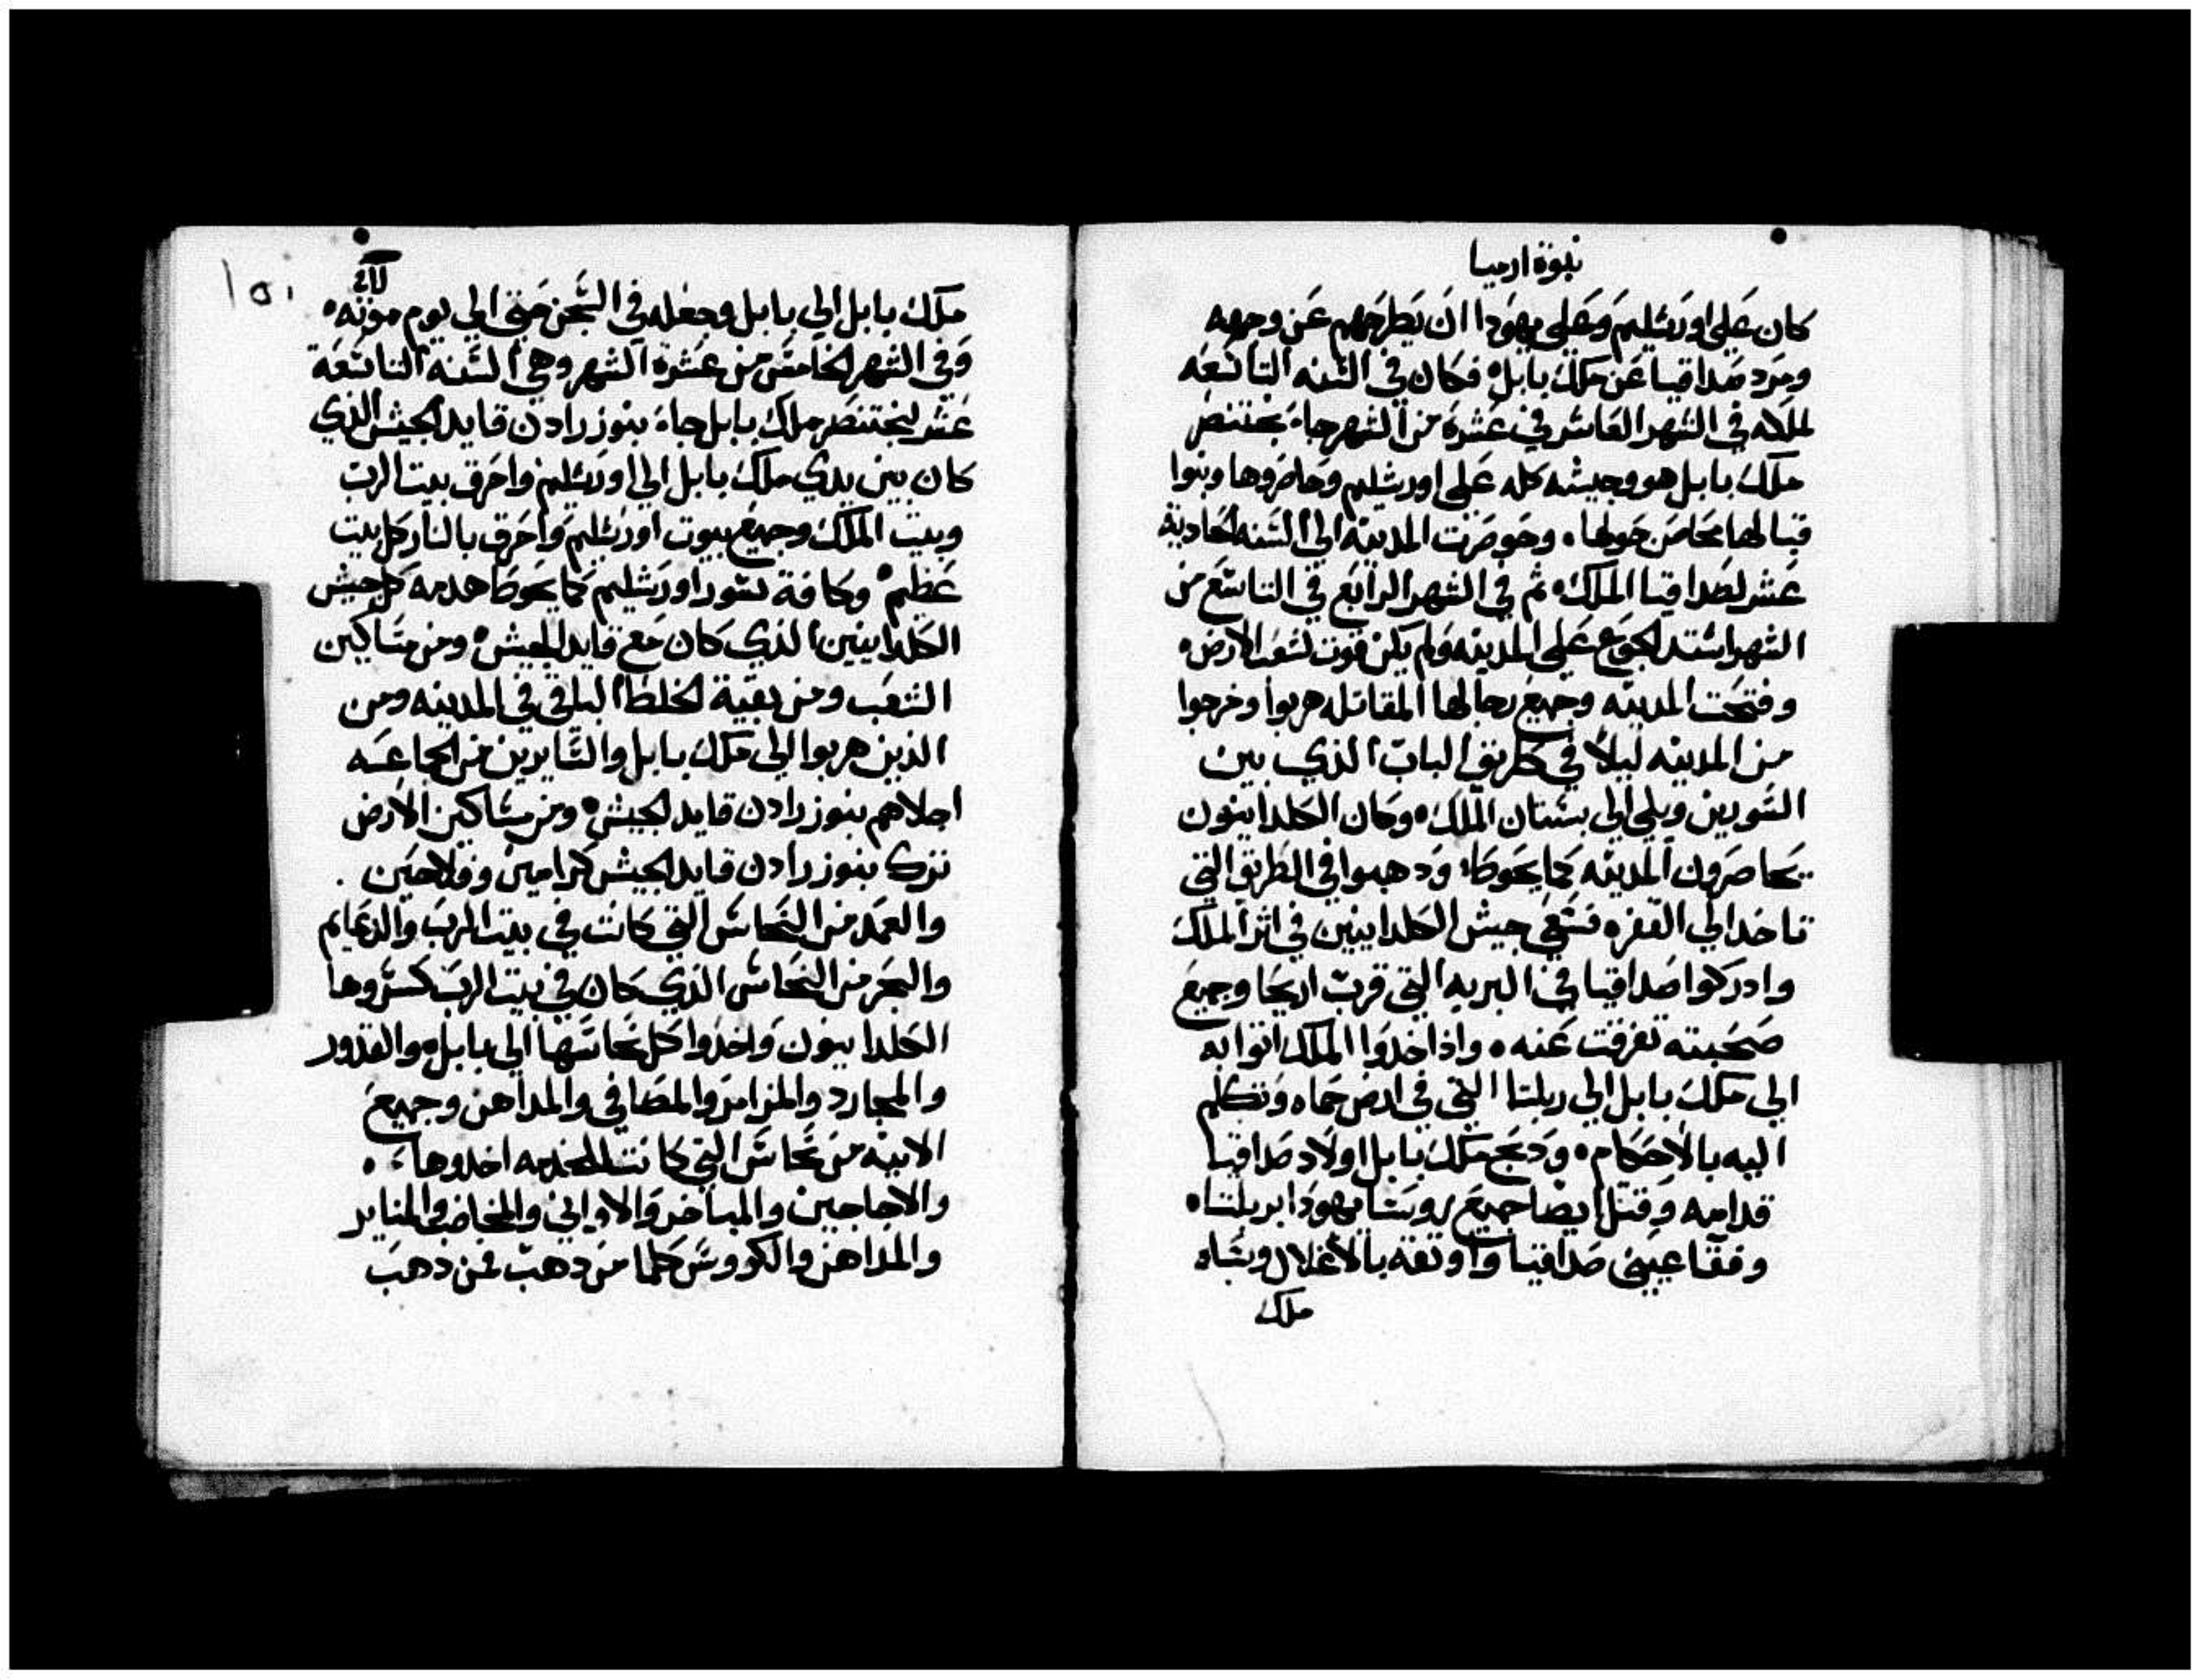 نبوة ارميا
كان على اورشليم وعلى يهودا ان يطرحهم عن وجهه
ومرد صداقيا عن ملك بابل فكان في السنه التاسعه
لملكه في الشهر العاشر في عشرة من الشهر جاء بختنصر
ملك بابل هو وجيشه كله على اورشليم وحاصروها وبنوا
قبالها محاصر حولها. وحوصرت المدينه الي السنه الحادية
عشر لصداقيا الملك ثم في الشهر الرابع في التاسع من
الشهر اشتد الجوع على المدينه ولم يكن قوت لشعب الارض
وفتحت المدينه وجميع رجالها المقاتله هربوا وخرجوا
من المدينه ليلا في طريق الباب الذي بين
السورين ويلي الي بستان الملك وكان الكلدانيون
يحاصرون المدينه كما يحوطا ودهبوا في الطريق التي
تاخد الي القفره فسعي جيش الكلدانيين في اثر الملك
وادركوا صداقيا في البريه التي قرب اريحا وجميع
صحبته تفرقت عنه. واذ اخدوا الملك اتوا به
الي ملك بابل الي ربلتا التي في ارض حماه وتكلم
اليه بالاحكام ودبح ملك بابل اولاد صداقيا
قدامه وقتل ايضا جميع روسا يهودا بربلتاه
وفقا عيني صداقيا واوثقه بالاغلال وساه
ملك
١٥١
ملك بابل الي بابل وجعله في السجن حتي الي يوم موته
وفي الشهر الخامس من عشرة الشهر وهي السنه التاسعة
عشر لبختنصر ملك بابل جاء بنوزرادن قايد الجيش الذي
كان بين يدي ملك بابل الي اورشليم واحرق بيت الرب
وبيت الملك وجميع بيوت اورشليم واحرق بالنار كل بيت
عظيم وكافة سور اورشليم كما يحوطا هدمه كل جيش
الكلدانيين الذي كان مع قايد الجيش ومن مساكين
الشعب ومن بقية الخلط الباقي في المدينه ومن
الذين هربوا الي ملك بابل والسايرين من الجاعسه
اجلاهم بنوزرادن قايد الجيش ومن مساكين الارض
ترك بنوزرادن قايد الجيش كرامين وفلاحين.
والعمد من النحاس التي كانت في بيت الرب والدعايم
والبحر من النحاس الذي كان في بيت الرب كسروها
الكلدانيون واخدوا كل نحاسها الي بابل والقدور
والمجارد والمزامر والمصافي والمداهن وجميع
الانيه من نحاس التي كانت للخدمه اخدوها.
والاجاجين والمباخر والاواني والمخاضب والمناير
والمداهن والكووس كلما من دهب فمن دهب